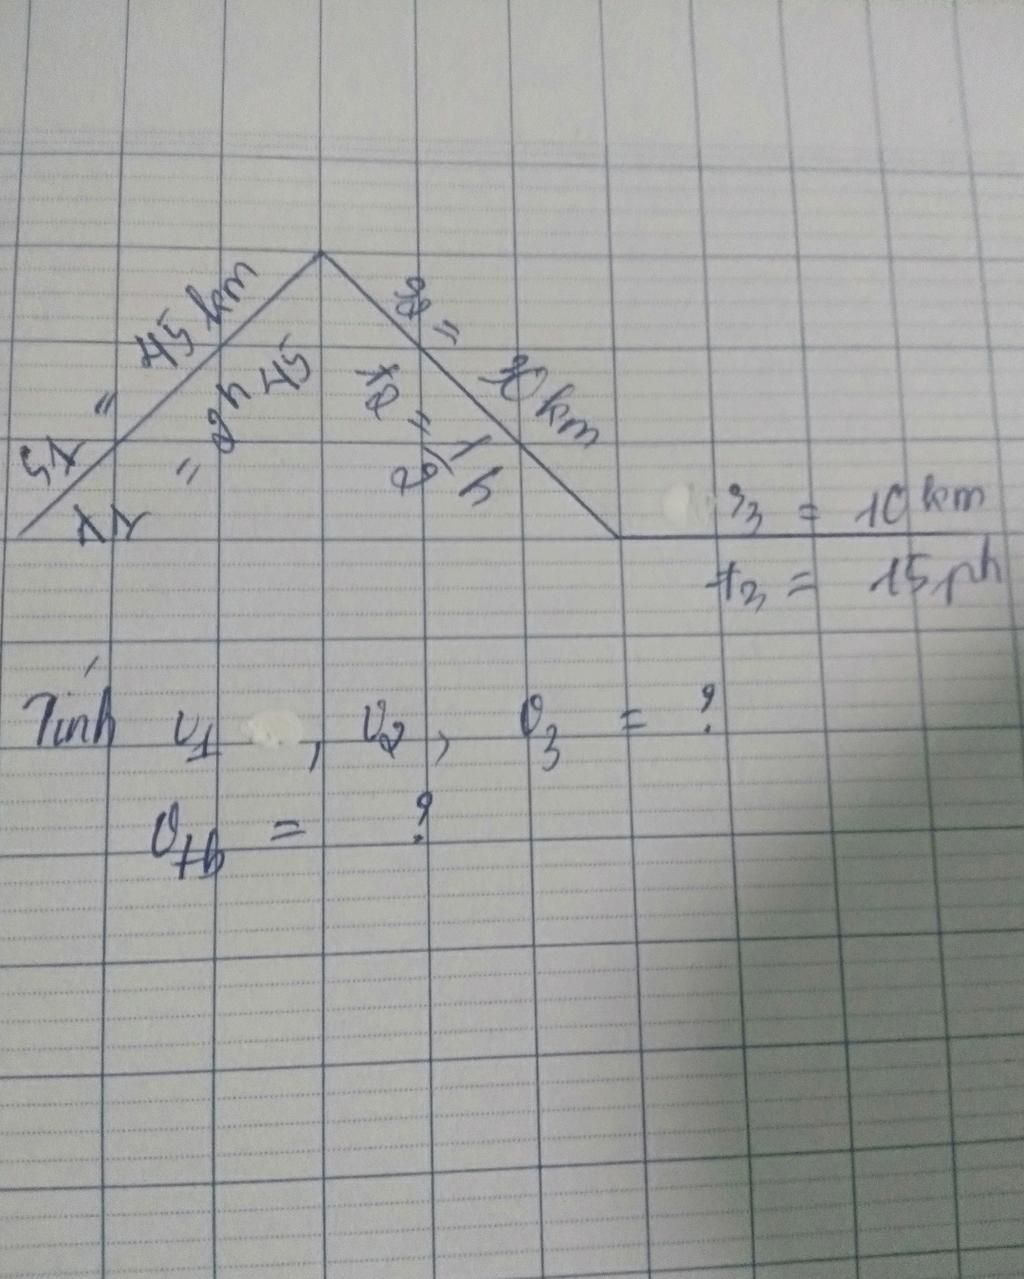 S1 = 45 km
t1 = 2h 45
S2 = 30 km
t2 = 1/2 h
S3 = 10 km
t3 = 15 ph
Tính v1, v2, v3 = ?
vtb = ?